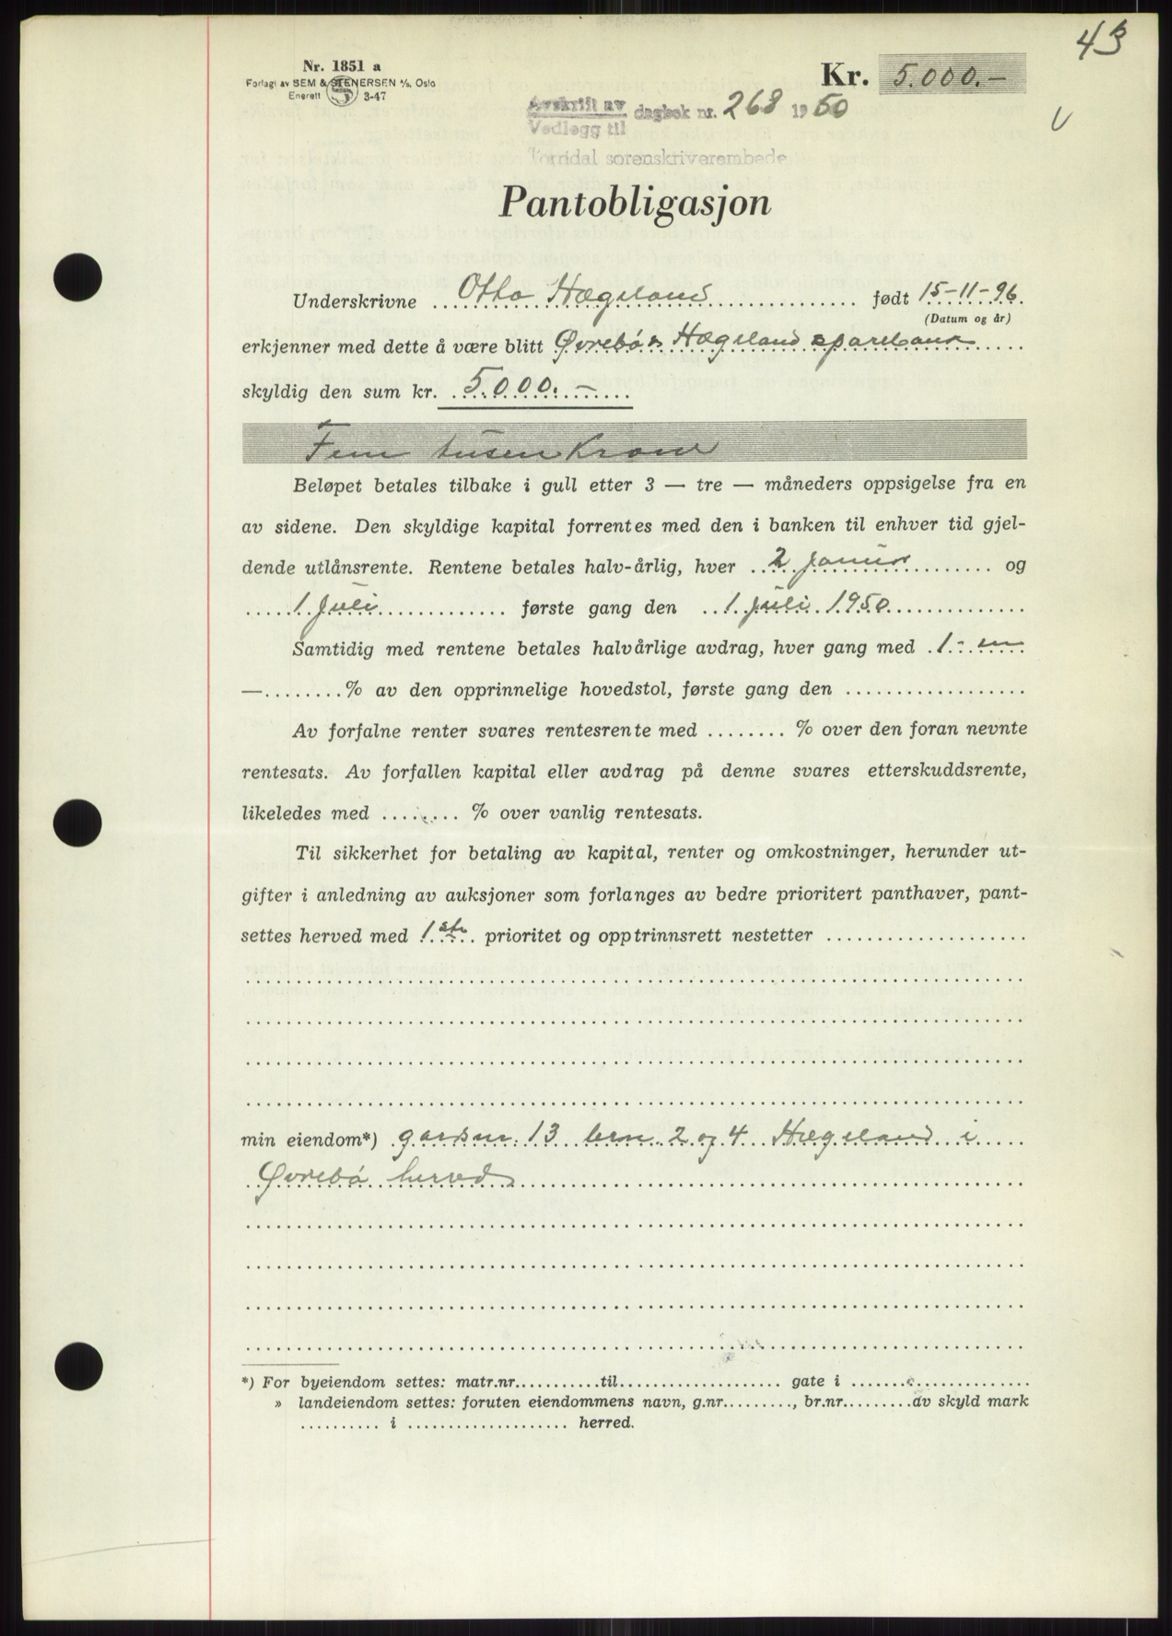 43
Nr. 1851 a
Forlagt av SEM & STENERSEN A/S, Oslo
Enerett 3-47
Kr. 5.000.-
Avskrift av dagbok nr. 268 1950
Vedlegg til
Torridal sorenskriverembede
Pantobligasjon
Underskrivne Otto Hægeland født 15-11-96.
(Datum og år)
erkjenner med dette å være blitt Øvrebø & Hægeland sparebank
skyldig den sum kr. 5.000.-
Fem tusen Kroner
Beløpet betales tilbake i gull etter 3 — tre — måneders oppsigelse fra en
av sidene. Den skyldige kapital forrentes med den i banken til enhver tid gjel-
dende utlånsrente. Rentene betales halv-årlig, hver 2 januar og
1 juli første gang den 1 juli 1950
Samtidig med rentene betales halvårlige avdrag, hver gang med 1 - en
—........% av den opprinnelige hovedstol, første gang den ..................
Av forfalne renter svares rentesrente med ........ % over den foran nevnte
rentesats. Av forfallen kapital eller avdrag på denne svares etterskuddsrente,
likeledes med ........ % over vanlig rentesats.
Til sikkerhet for betaling av kapital, renter og omkostninger, herunder ut-
gifter i anledning av auksjoner som forlanges av bedre prioritert panthaver, pant-
settes herved med 1ste prioritet og opptrinnsrett nestetter ....................
min eiendom*) gardsnr. 13 brn. 2 og 4 Hægeland i
Øvrebø herred
*) For byeiendom settes: matr.nr...........til.................... gate i ......................
» landeiendom settes: foruten eiendommens navn, g.nr........., br.nr.........av skyld mark
.......... i .................... herred.